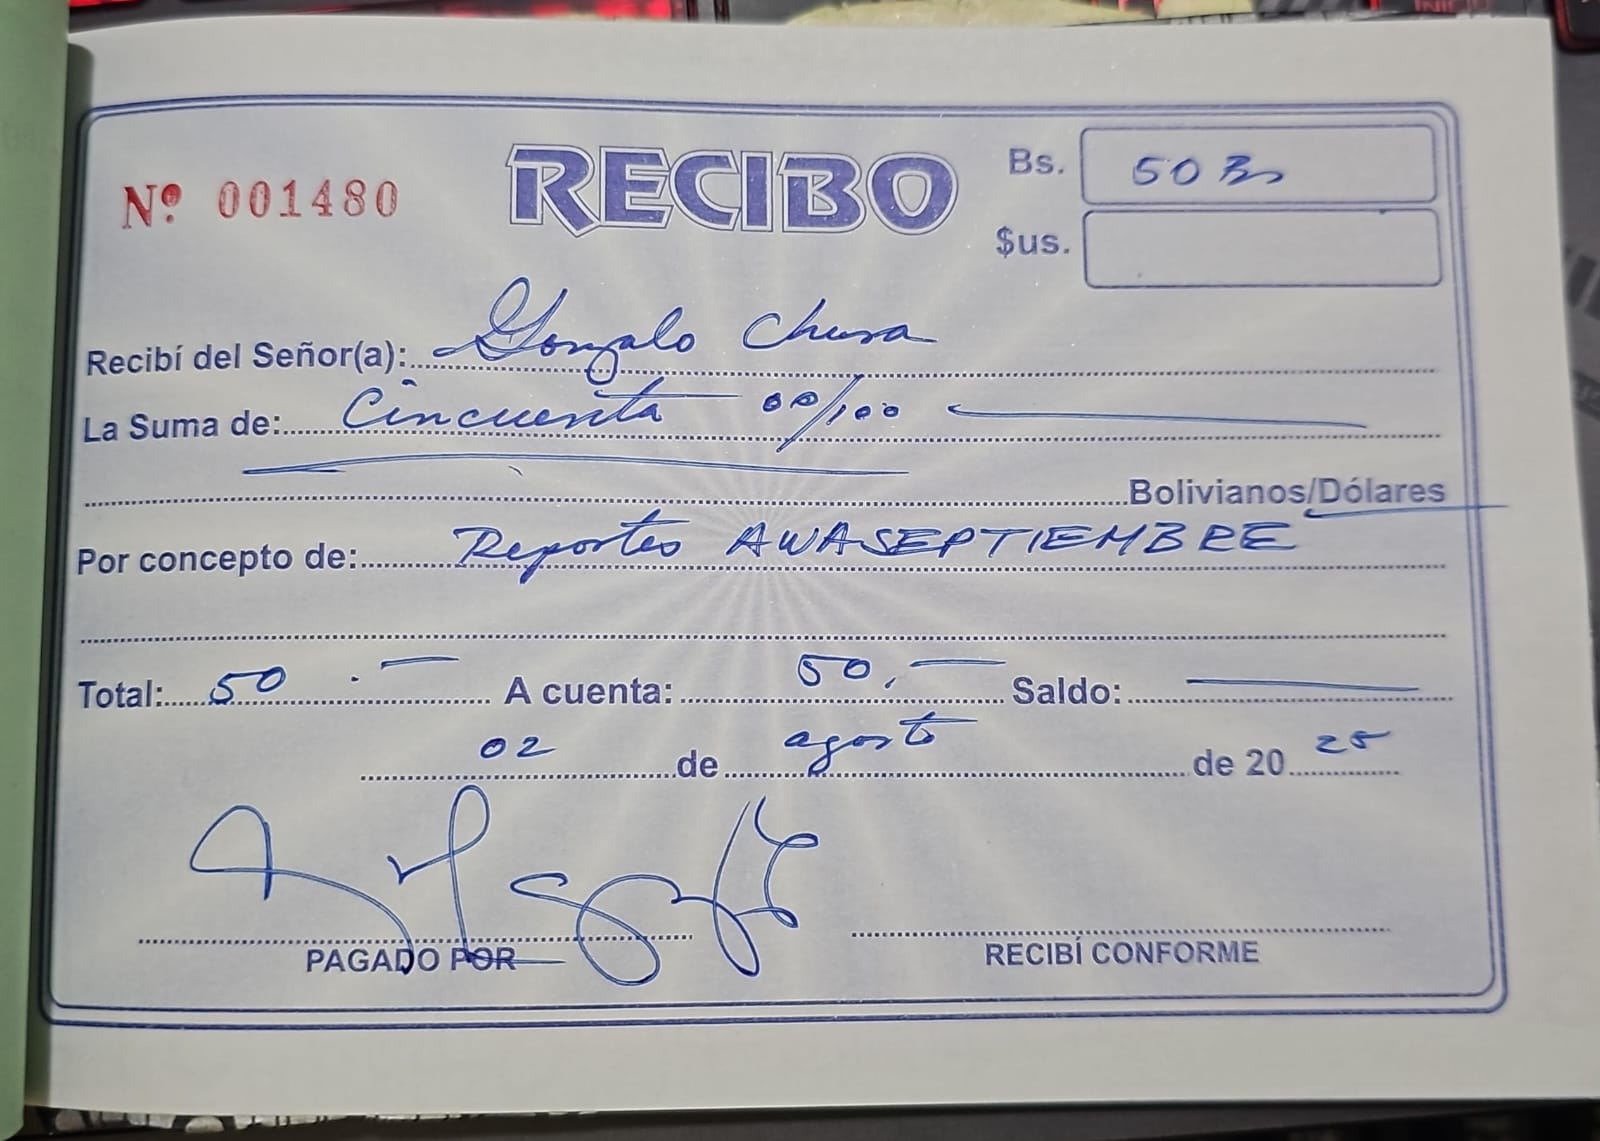 Nº 001480
RECIBO
Bs. 50 Bs
$us.
Recibí del Señor(a): Gonzalo Chura
La Suma de: Cincuenta 00/100
Bolivianos/Dólares
Por concepto de: Reportes AWASEPTIEMBRE
Total: 50.— A cuenta: 50,— Saldo: —
02 de agosto de 20 25
PAGADO POR
RECIBÍ CONFORME